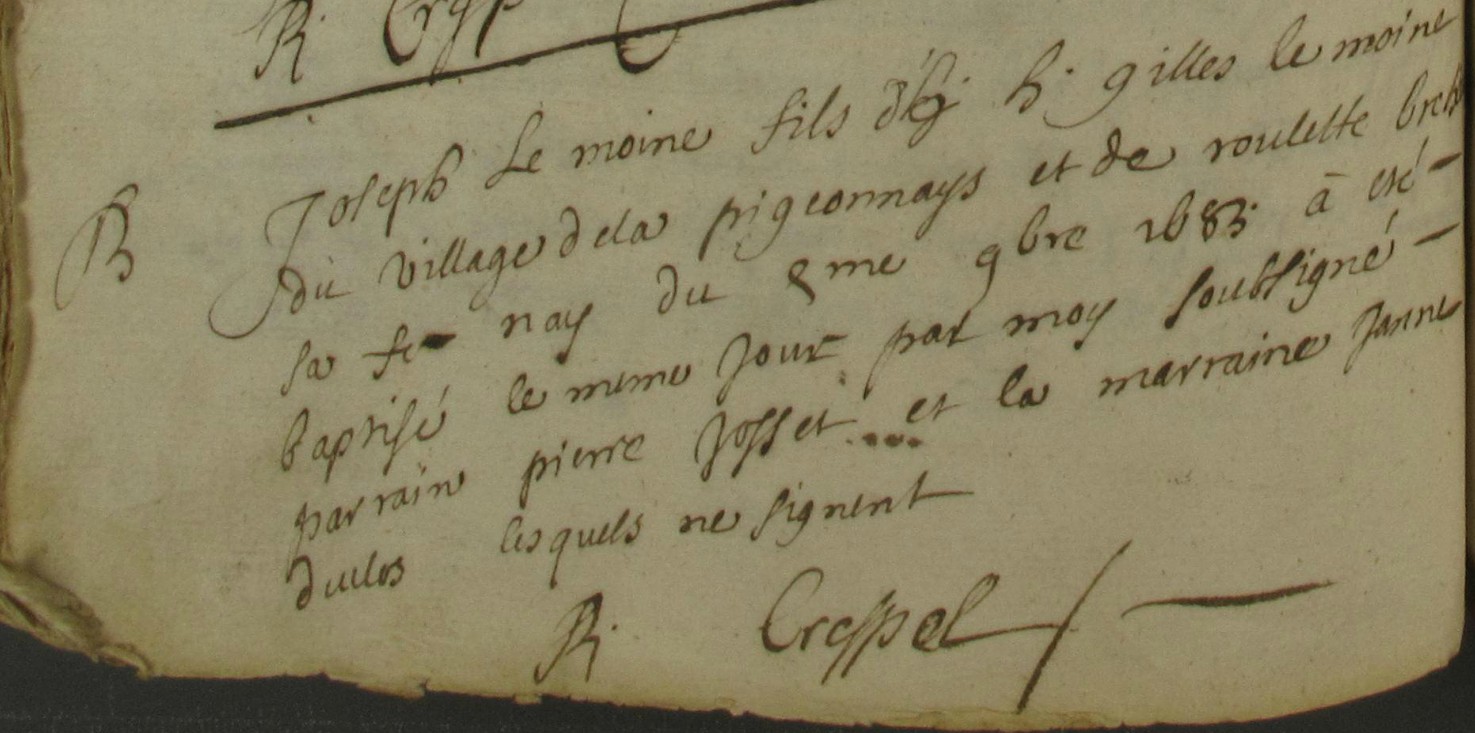 R Cresp
B Joseph Le moine fils h. gilles le moine
du village dela pigeonnays et de roulette
sa fe nay du me 9bre 1683 a eté -
baptisé le meme Jour par moy soubsigné -
parrain pierre Josset ... et la marraine Janne
duclos lesquels ne signent
R Cresspel